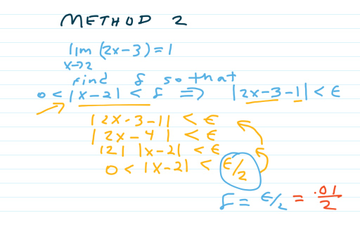 METHOD 2
lim (2x-3) = 1
x→2
find δ so that
0 < |x-2| < δ ⇒ |2x-3-1| < ε
|2x-3-1| < ε
|2x-4| < ε
|2| |x-2| < ε
0 < |x-2| < ε/2
δ = ε/2 = .01/2